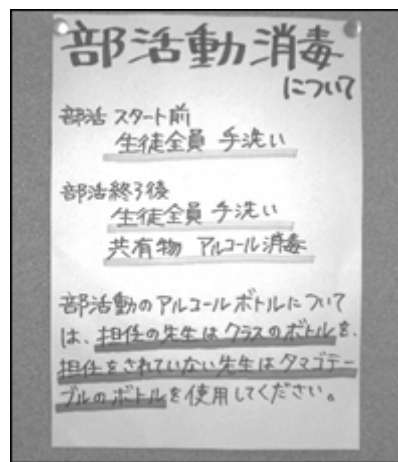 部活動消毒
について
部活スタート前
生徒全員 手洗い
部活終了後
生徒全員 手洗い
共有物 アルコール消毒
部活動のアルコールボトルについて
は、担任の先生はクラスのボトルを、
担任をされていない先生はタマゴテー
ブルのボトルを使用してください。